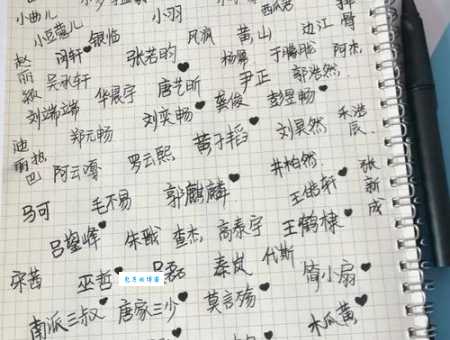 小曲儿 小羽 西瓜
小豆蔻儿 银临 风飒 黄山 边江
赵丽颖 阿轩 张若昀 杨幂 于朦胧 阿杰
吴承轩 华晨宇 唐艺昕 尹正 郭浩然
刘端端 刘奕畅 龚俊 彭昱畅
迪丽热巴 郑元畅 黄子韬 刘昊然 朱浩辰
阿云嘎 罗云熙 井柏然 张新成
马可 毛不易 郭麒麟 王皓轩
吕鋆峰 朱戬 查杰 高泰宇 王鹤棣
张茜 巫哲 秦岚 代斯 简小扇
南派三叔 唐家三少 莫言殇 木瓜黄